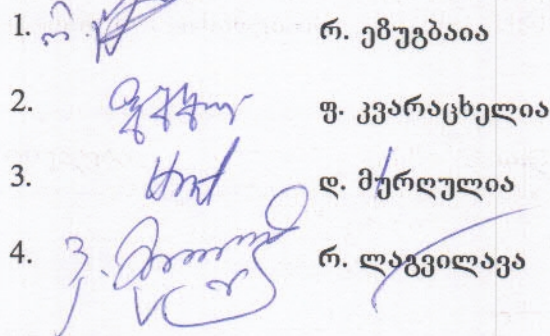 1. რ. ეზუგბაია
2. ფ. კვარაცხელია
3. დ. მურღულია
4. რ. ლაგვილავა